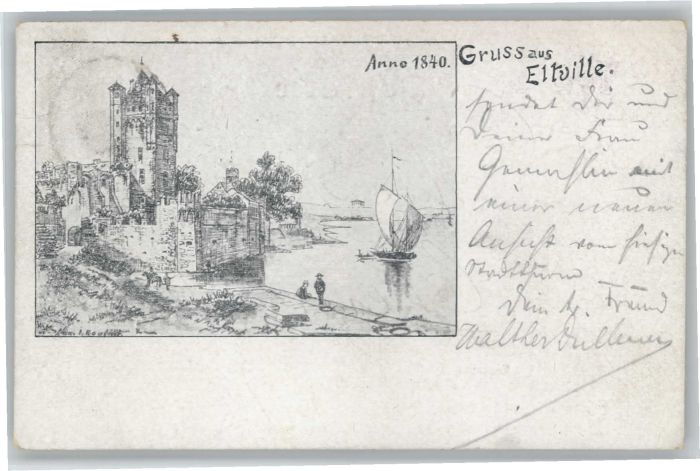 Anno 1840.
Gruss aus
Eltville.
sendet Dir und
Deiner Frau
Gemahlin mit
einer neuen
Ansicht vom hiesigen
Stadtturm
Dein Freund
Walther